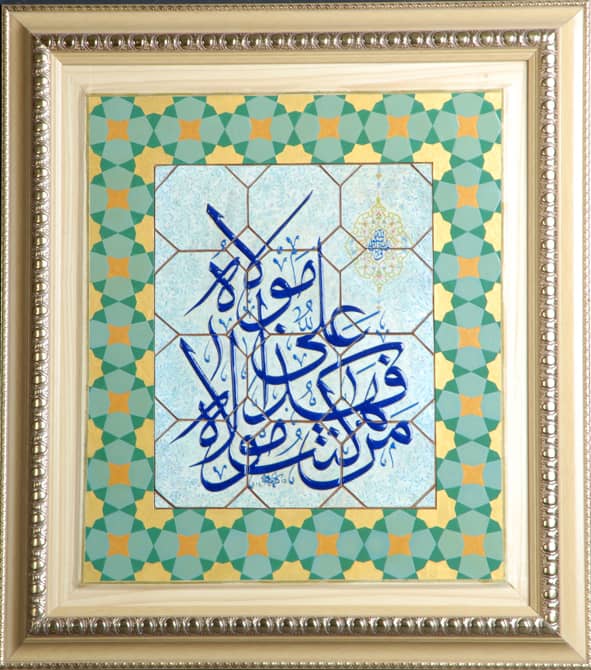 من كنت مولاه
فهذا علي
مولاه